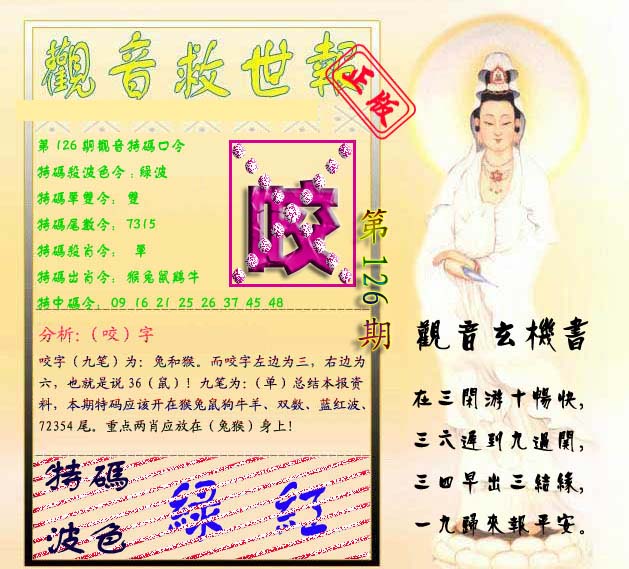 觀音救世報
正版
第126期觀音特碼口令
特碼殺波色令：綠波
特碼單雙令： 雙
特碼尾數令： 7315
特碼殺肖令： 單
特碼出肖令： 猴兔鼠鷄牛
特中碼令： 09 16 21 25 26 37 45 48
咬
第126期
分析:（咬）字
咬字（九笔）为：兔和猴。而咬字左边为三，右边为
六，也就是说36（鼠）！九笔为：（单）总结本报资
料，本期特码应该开在猴兔鼠狗牛羊、双数、蓝红波、
72354尾。重点两肖应放在（兔猴）身上！
特碼
波色
綠 紅
觀音玄機書
在三閑游十暢快，
三六遲到九過関，
三四早出三結緣，
一九歸來報平安。